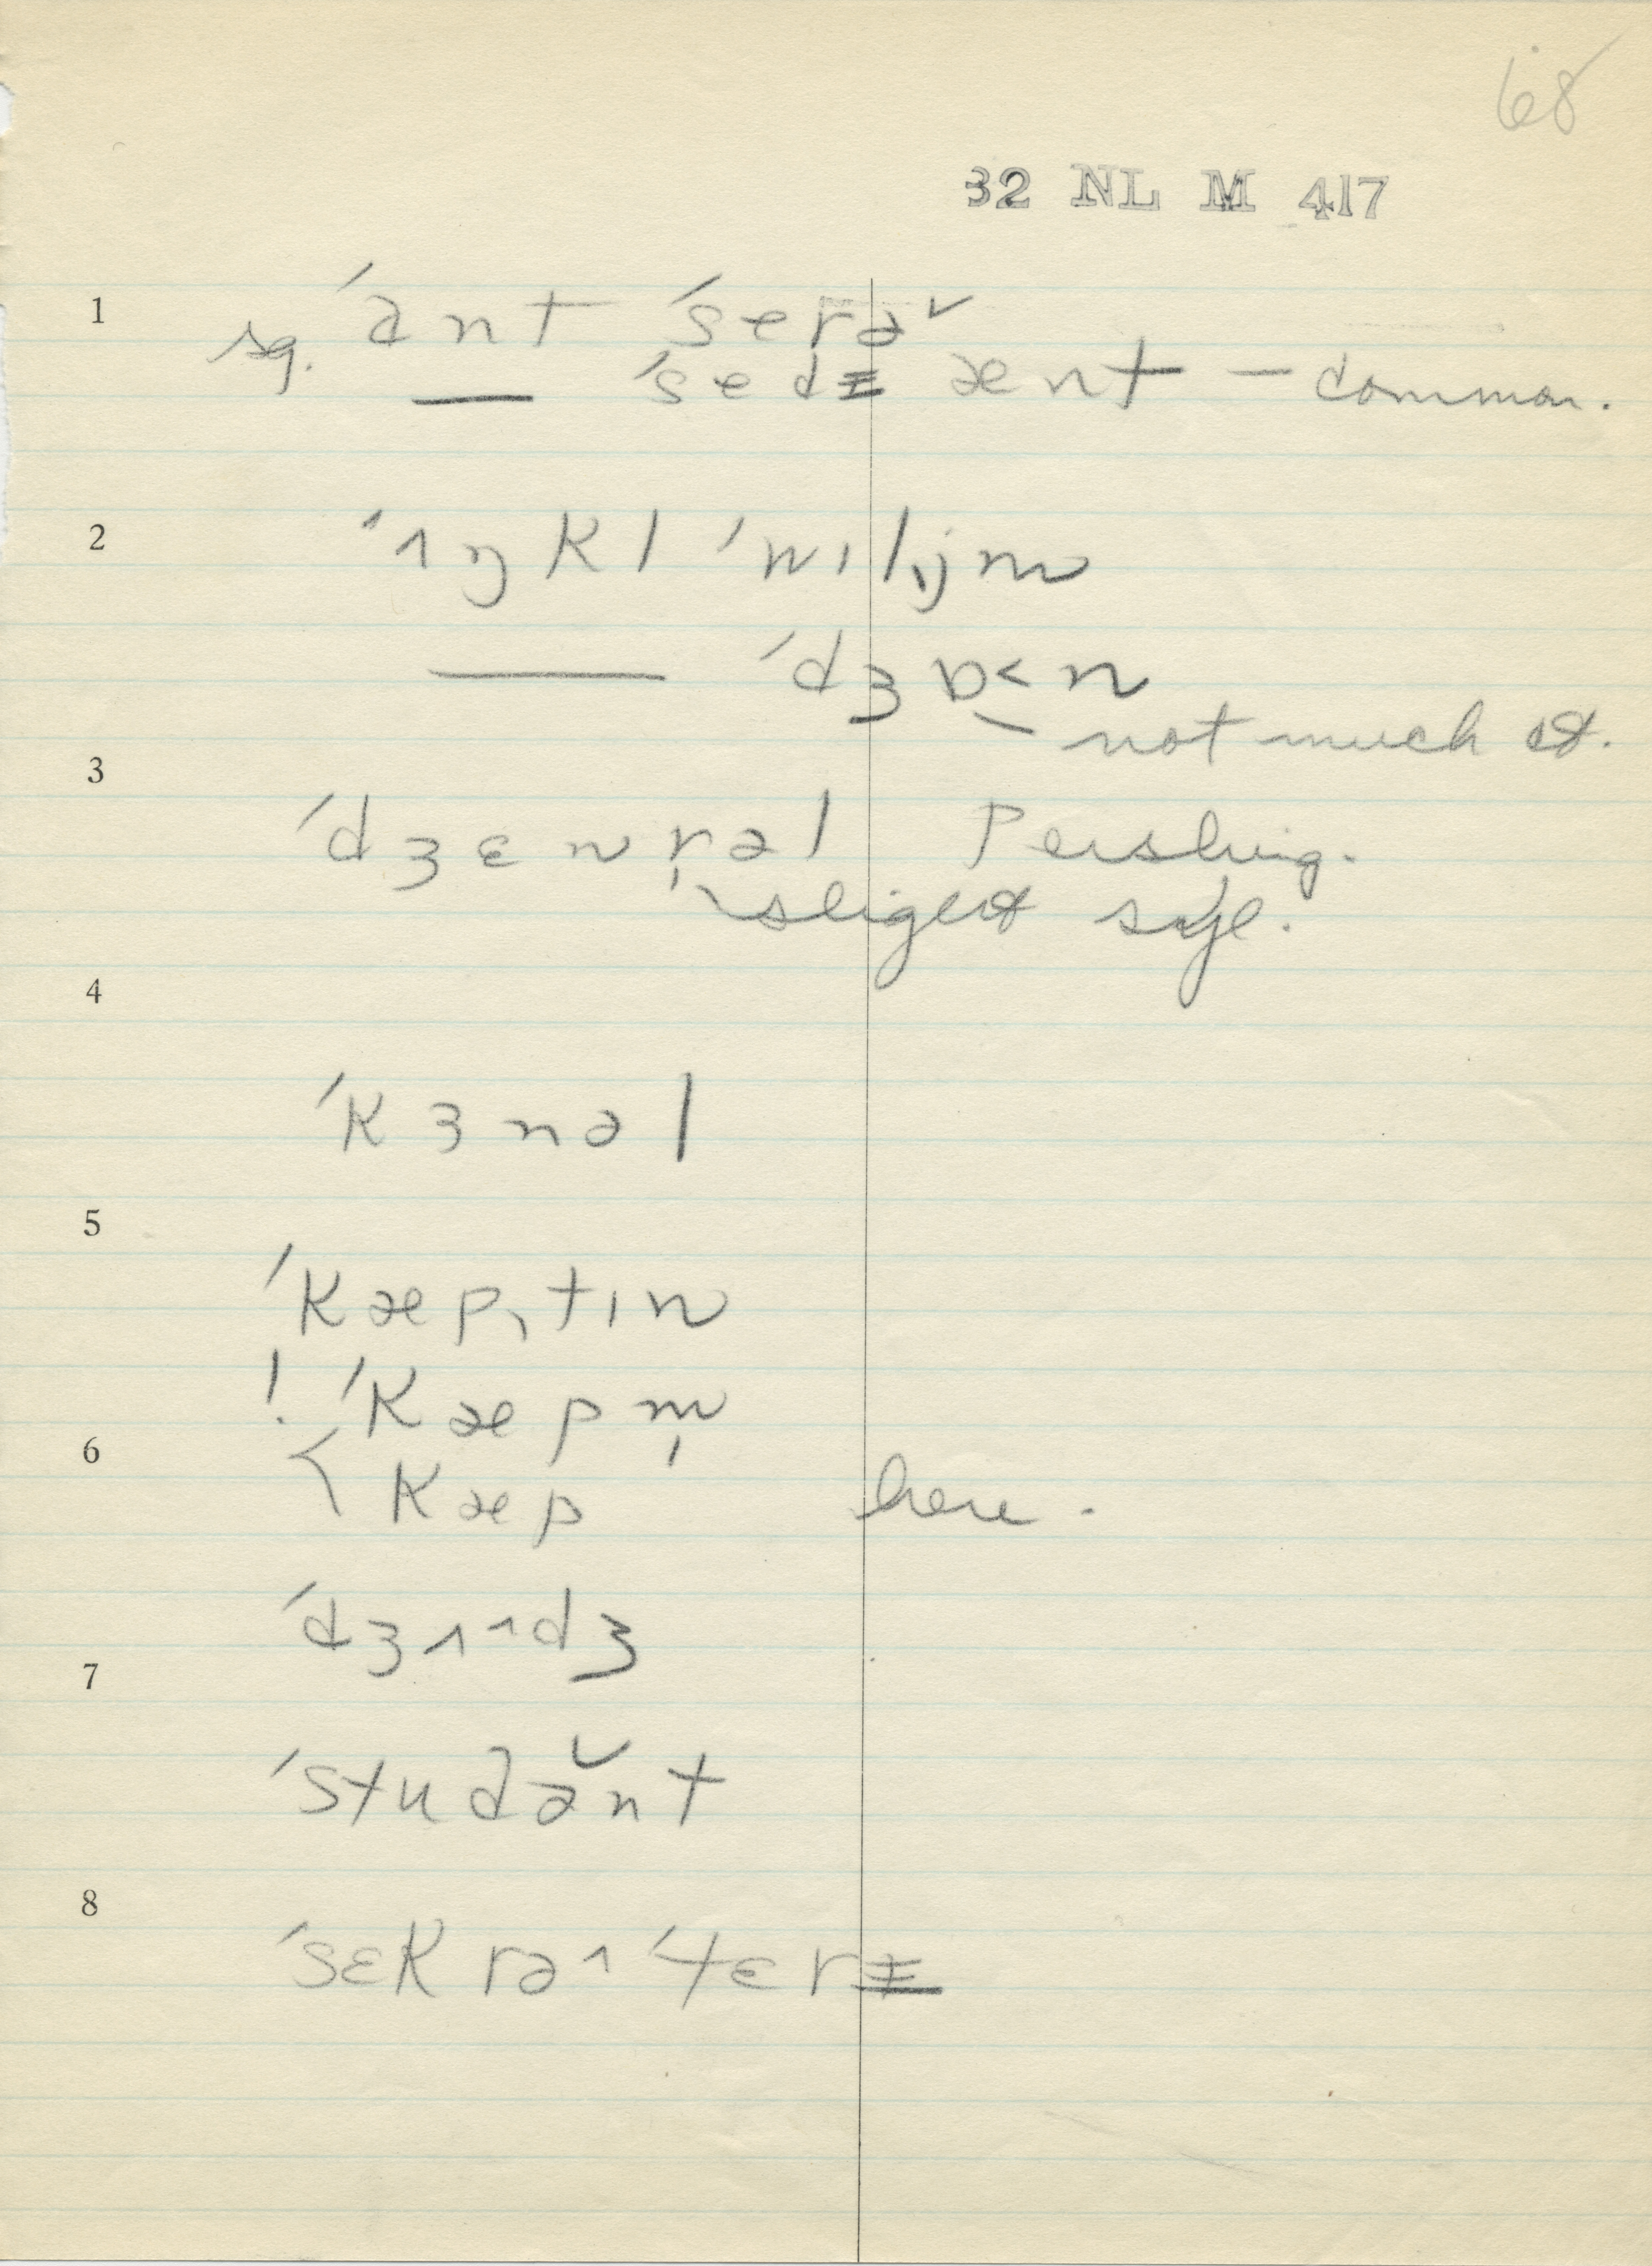 68
32 NL M 417
1
sg. ˈant ˈserə̆
— ˈsedɨ ænt – common.
2
ˈʌŋkl ˈwɪlɪ̯jm
— ˈdʒɒ˂n
not much rd.
3
ˈdʒɛnr̩əl Pershing.
slight syl.
4
ˈkɜnəl
5
ˈkæpˌtɪn
! ˈkæpm̩
6
< kæp here.
ˈdʒʌˆdʒ
7
ˈstudə̆nt
8
ˈsɛkrəˆˈtɛrɨ